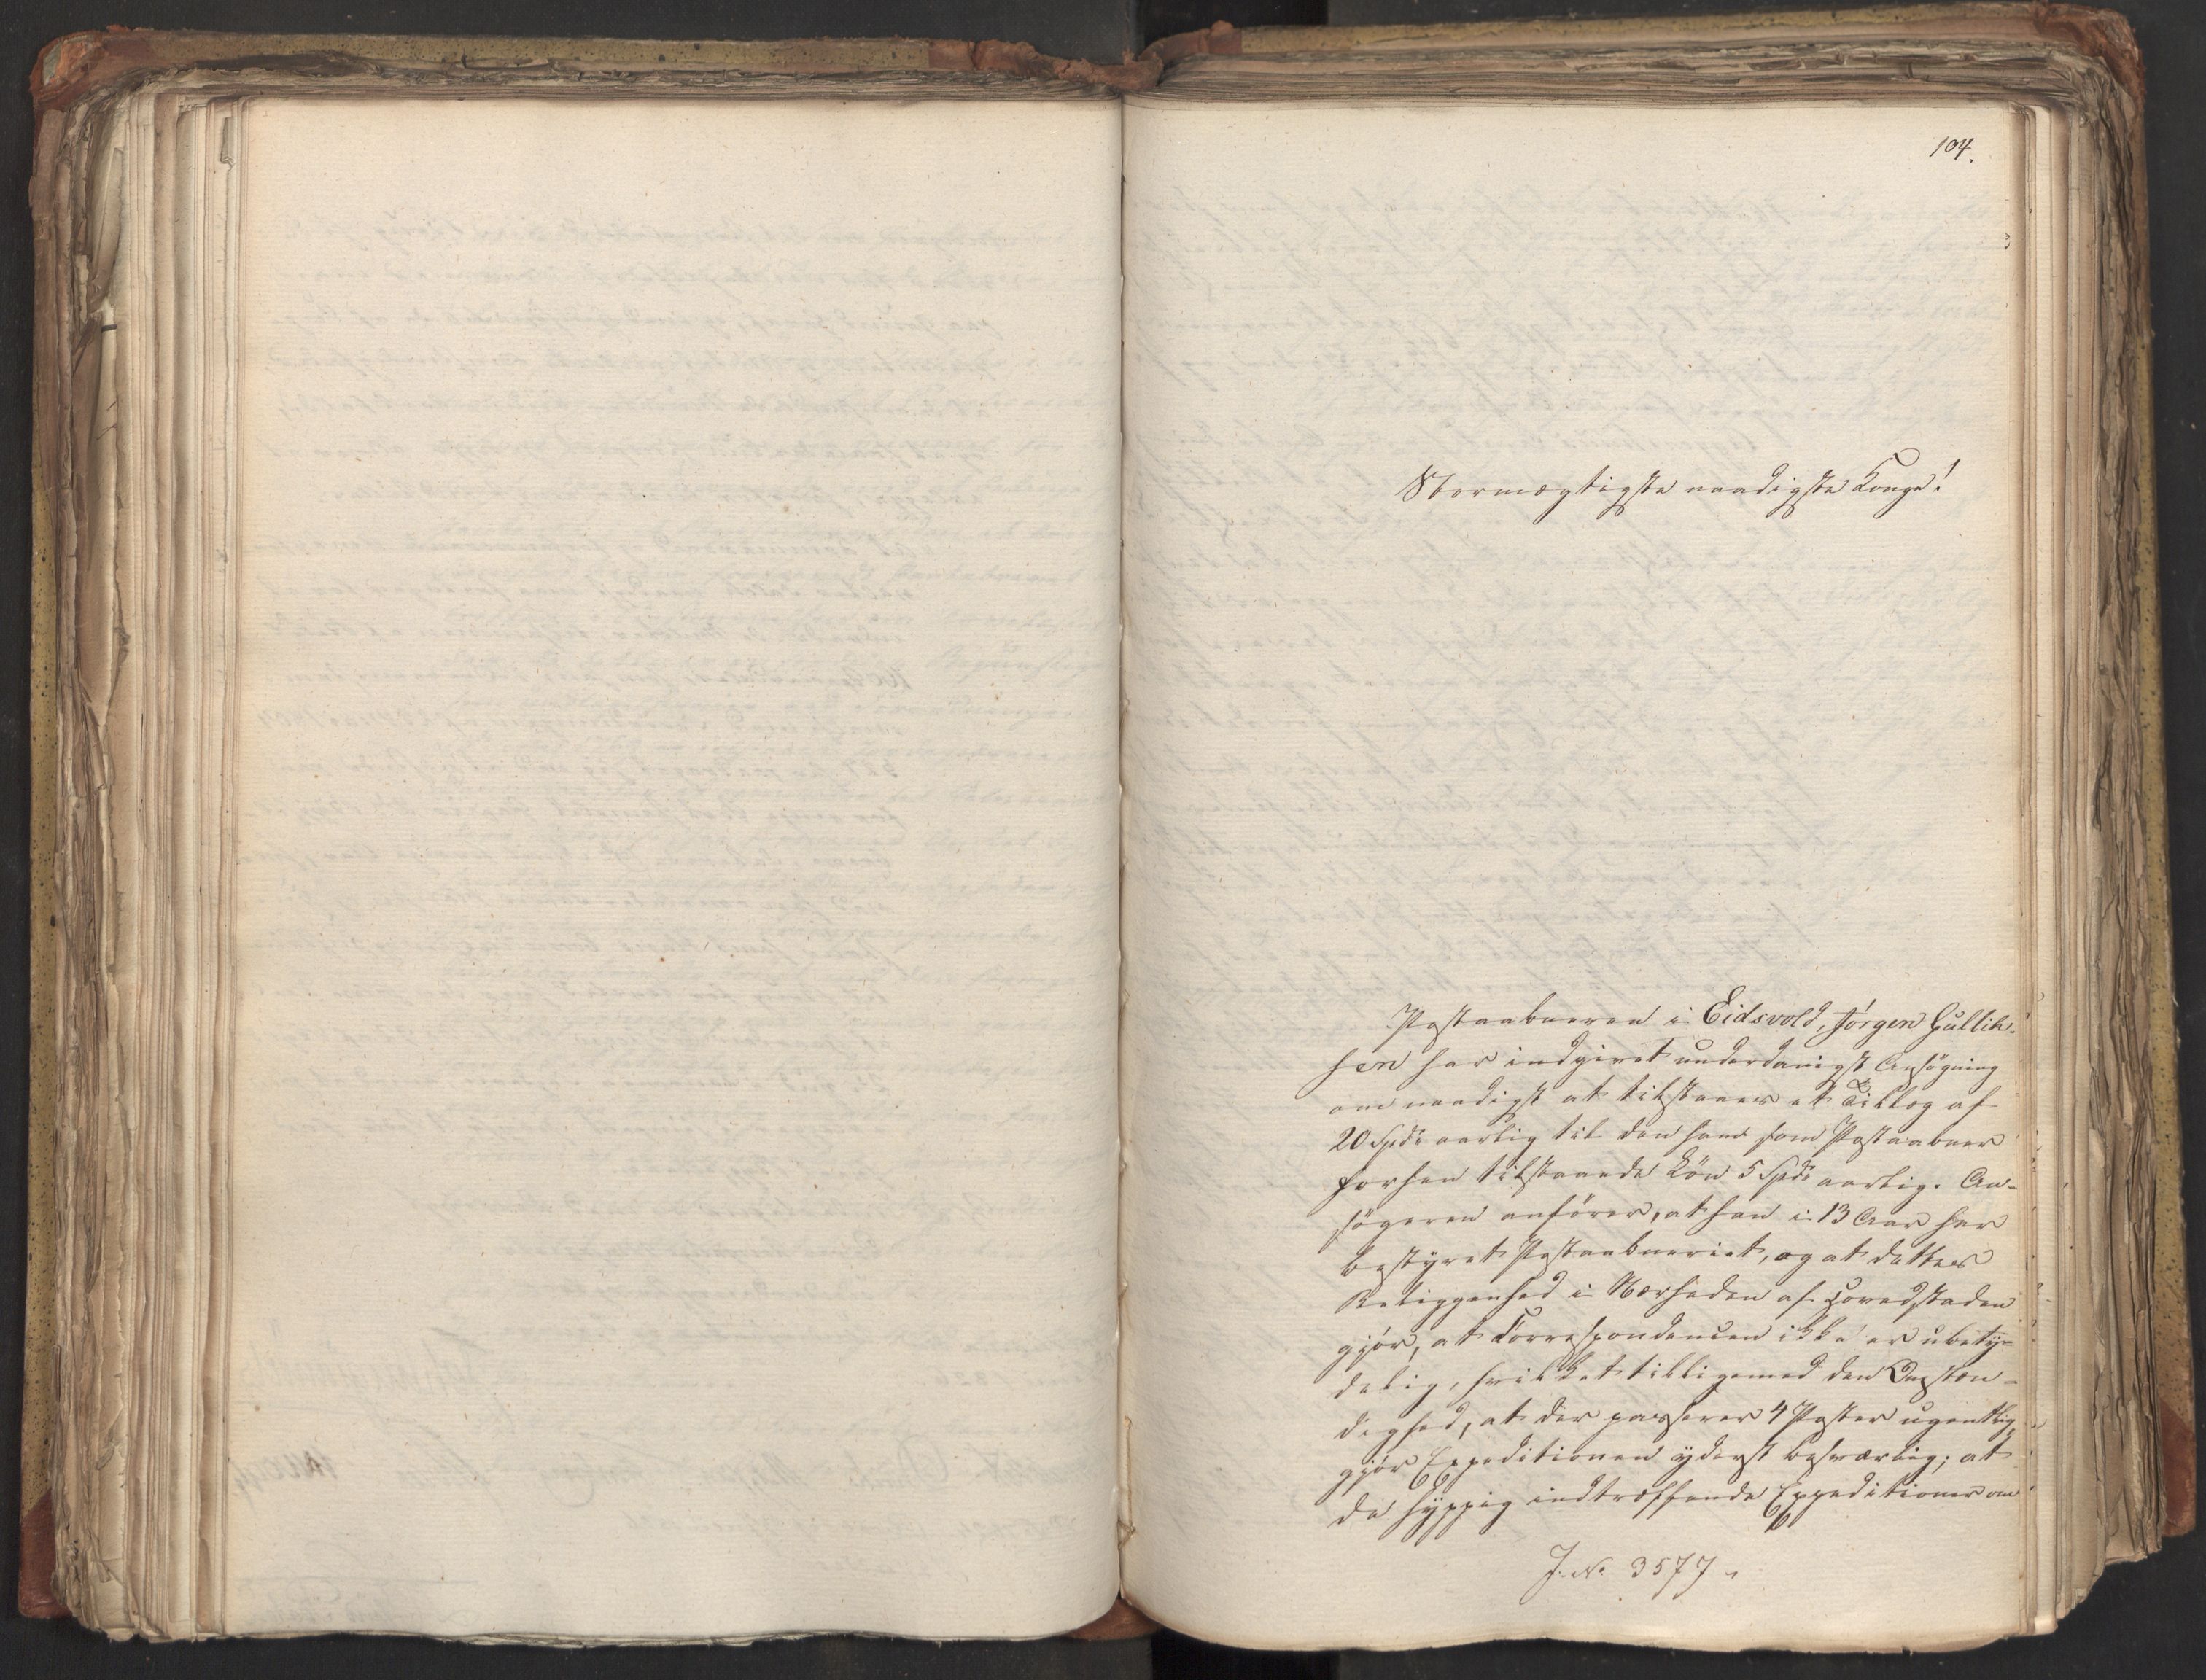 104.
Stormægtigste naadigste Konge!
Postaabneren i Eidsvold, Jörgen Gullik-
sen har indgivet underdanigst Ansögning
om naadigst at tilstaaes et Tillæg af
20 Spd: aarlig til den ham som Postaabner
forhen tilstaaede Lön 5 Spd: aarlig. An-
sögeren anförer, at han i 13 Aar har
bestyret Postaabneriet, og at dettes
Beliggenhed i Nærheden af Hovedstaden
gjör, at Correspondencen ikke er ubety-
delig, hvilket tilligemed den Omstæn-
dighed, at der passerer 4 Poster ugentlig,
gjör Expeditionen yderst besværlig; at
de hyppig indtræffende Expeditioner om
J. No 3577.